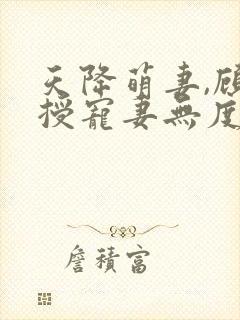 天降萌妻,顾
授寵妻無度
詹積富